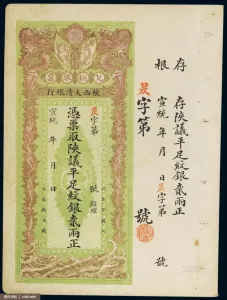 存根
存陝議平足紋銀貳兩正
宣統 年 月 日 昃字第 號
昃字第 號
陝西大清銀行
昃字第 號
憑票取陝議平足紋銀貳兩正
宣統 年 月 日